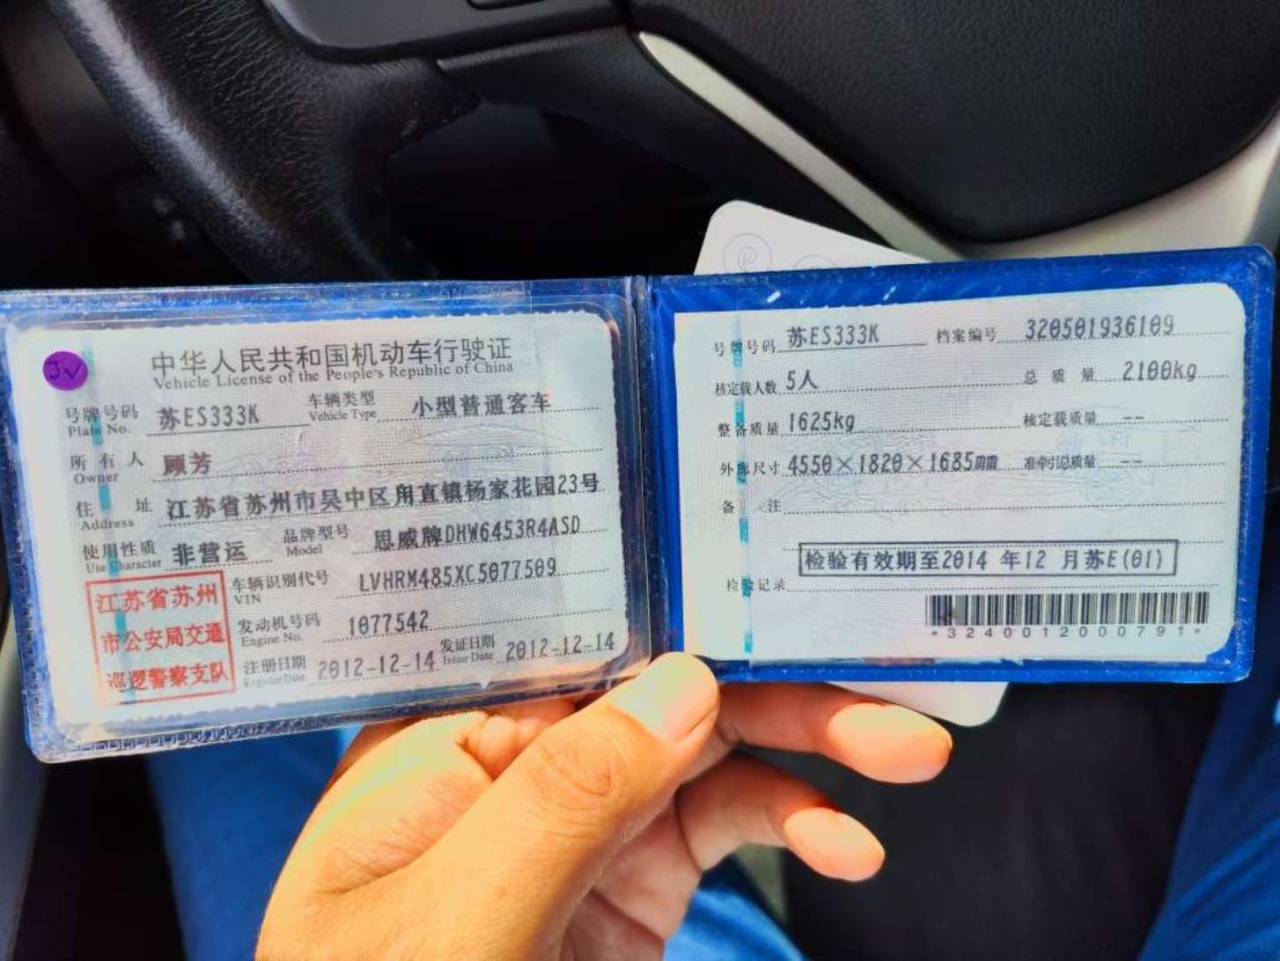 JV
中华人民共和国机动车行驶证
Vehicle License of the People's Republic of China
号牌号码 苏ES333K 车辆类型 小型普通客车
Plate No. Vehicle Type
所有人 顾芳
Owner
住址 江苏省苏州市吴中区甪直镇杨家花园23号
Address
使用性质 非营运 品牌型号 思威牌DHW6453R4ASD
Use Character Model
江苏省苏州
市公安局交通
巡逻警察支队
车辆识别代号 LVHRM485XC5077509
VIN
发动机号码 1077542
Engine No.
注册日期 2012-12-14 发证日期 2012-12-14
Register Date Issue Date
号牌号码 苏ES333K 档案编号 320501936109
核定载人数 5人 总质量 2100kg
整备质量 1625kg 核定载质量 --
外廓尺寸 4550×1820×1685mm 准牵引总质量 --
备注
检验有效期至2014 年12 月苏E(01)
检验记录
*3240012000791*